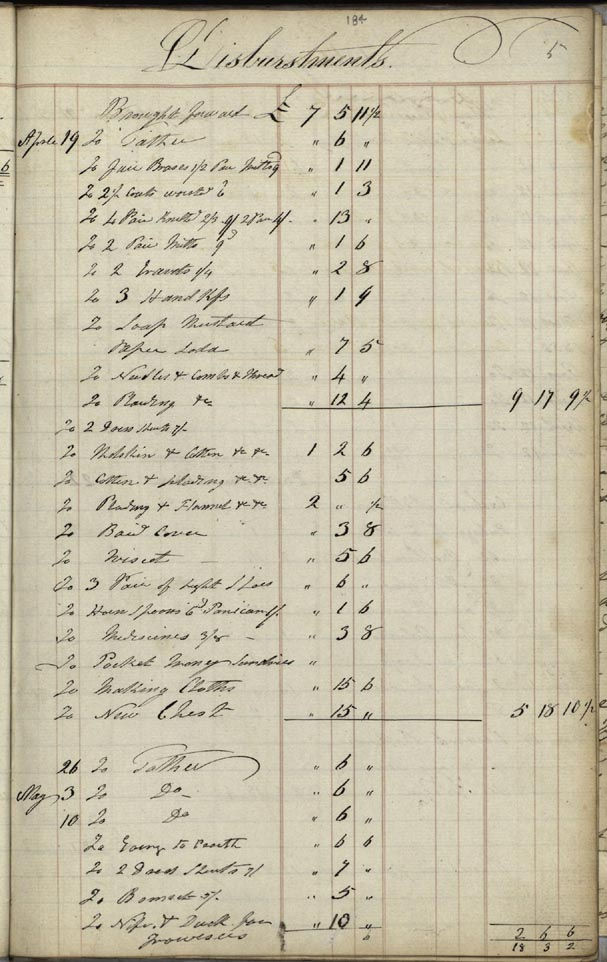 184
Disburstments. 5
Brought forward £ 7 5 11 1/2
Aprile 19 To Father " 6 "
To Juie Brases 1/2 Pair Mitts 9d " 1 11
To 2 1/2 Coats worsted 6 " 1 3
To 4 Pair 2/2 2 Pair " 13 "
To 2 Pair Mitts 9d " 1 6
To 2 Gravats 1/4 " 2 8
To 3 Hand Kfs " 1 9
To Soap Mustard
Paper Soda " 7 5
To Needles & Combs & Thread " 4 "
To Plaiding &c " 12 4 9 17 9 1/2
To 2 Dress Shirts 7/-
To Molskin & Cotten &c &c 1 2 6
To Cotten & plading &c &c 5 6
To Plading & Flannel &c &c 2 " 1/2
To Baid Cover " 3 8
To " 5 6
To 3 Pair of Light Shoes " 6 "
To Horn Spoons 6d Panican 1/- " 1 6
To Medicines 3/8 - " 3 8
To Pocket Money Sundries "
To Making Cloths " 15 6
To New Chest " 15 " 5 18 10 1/2
26 To Father " 6 "
May 3 To Do " 6 "
10 To Do " 6 "
To Going to " 6 6
To 2 Dress Shirts 7/ " 7 "
To Bonnet 5/- " 5 "
To & Duck for " 10 "
Trowsers " 2 6 6
18 3 2